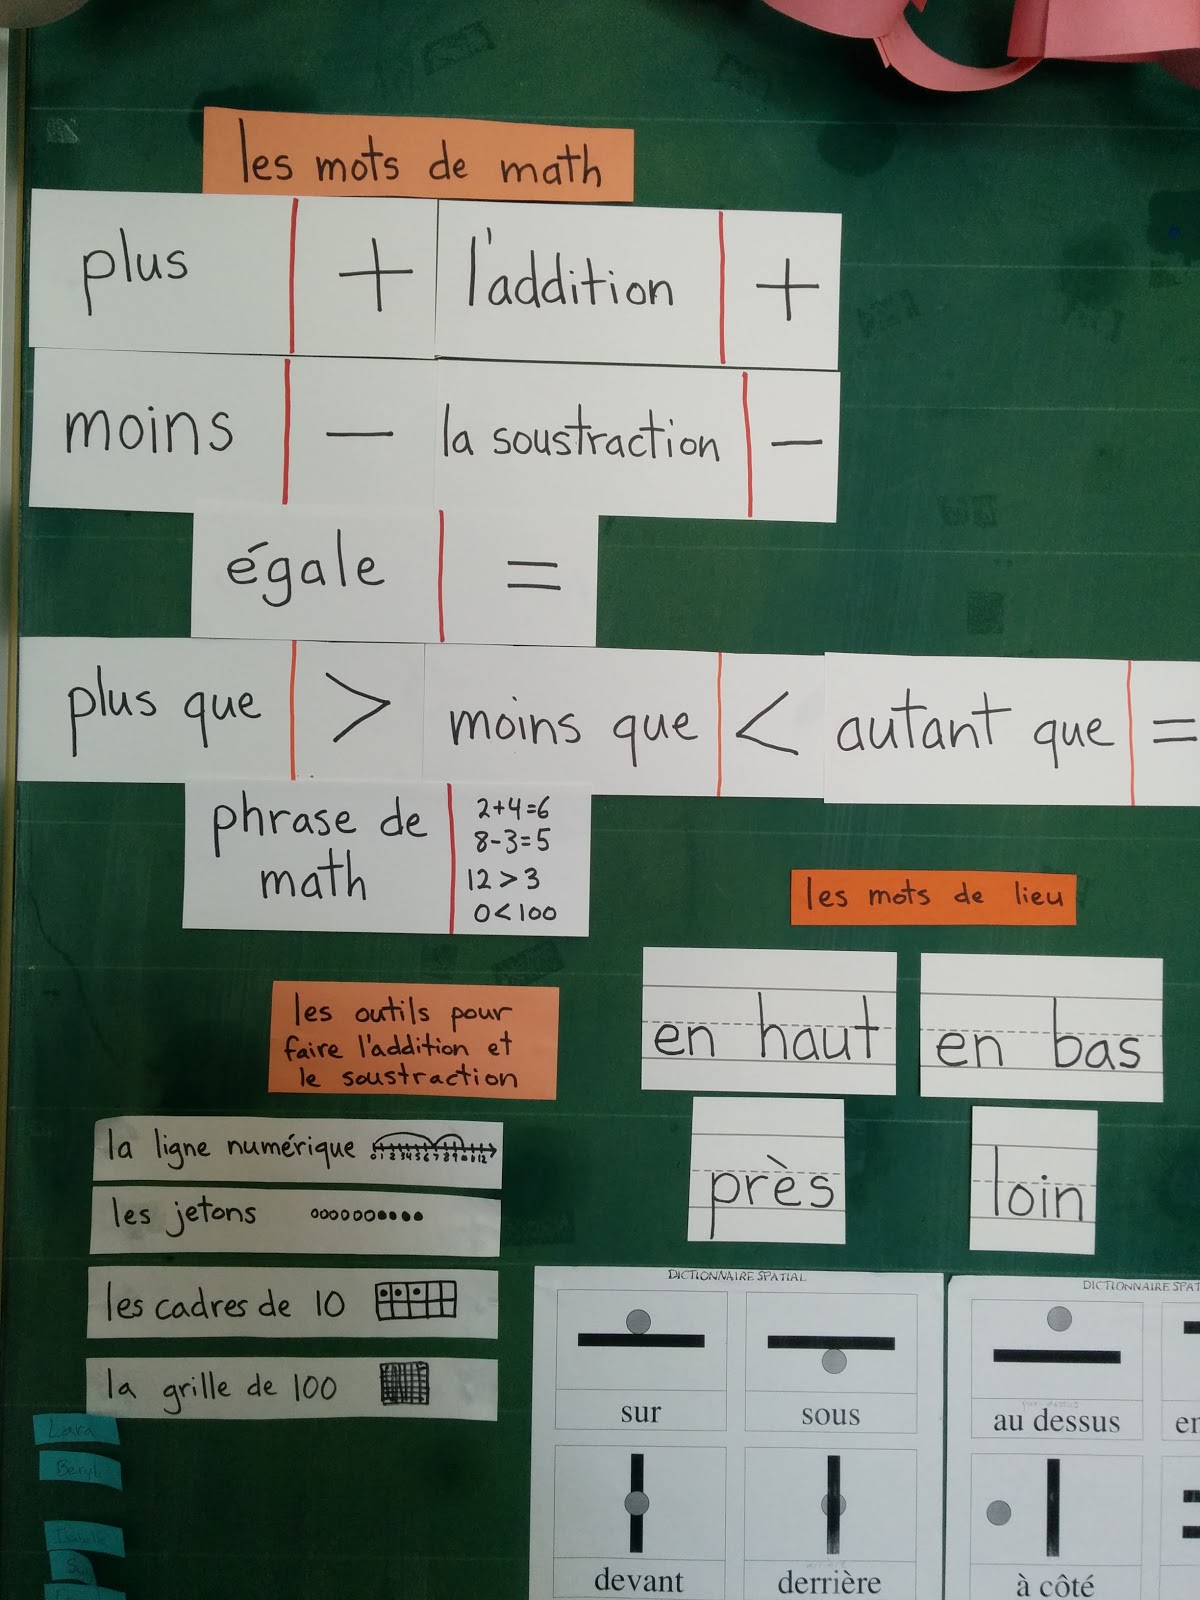 les mots de math
plus + l'addition +
moins - la soustraction -
égale =
plus que > moins que < autant que =
phrase de
math
2+4=6
8-3=5
12 > 3
0<100
les mots de lieu
en haut en bas
près loin
les outils pour
faire l'addition et
le soustraction
la ligne numérique 0 1 2 3 4 5 6 7 8 9 10 11 12
les jetons
les cadres de 10
la grille de 100
Lara
Beryl
Isabelle
DICTIONNAIRE SPATIAL
sur sous
devant derrière
DICTIONNAIRE SPAT
au dessus en
à côté